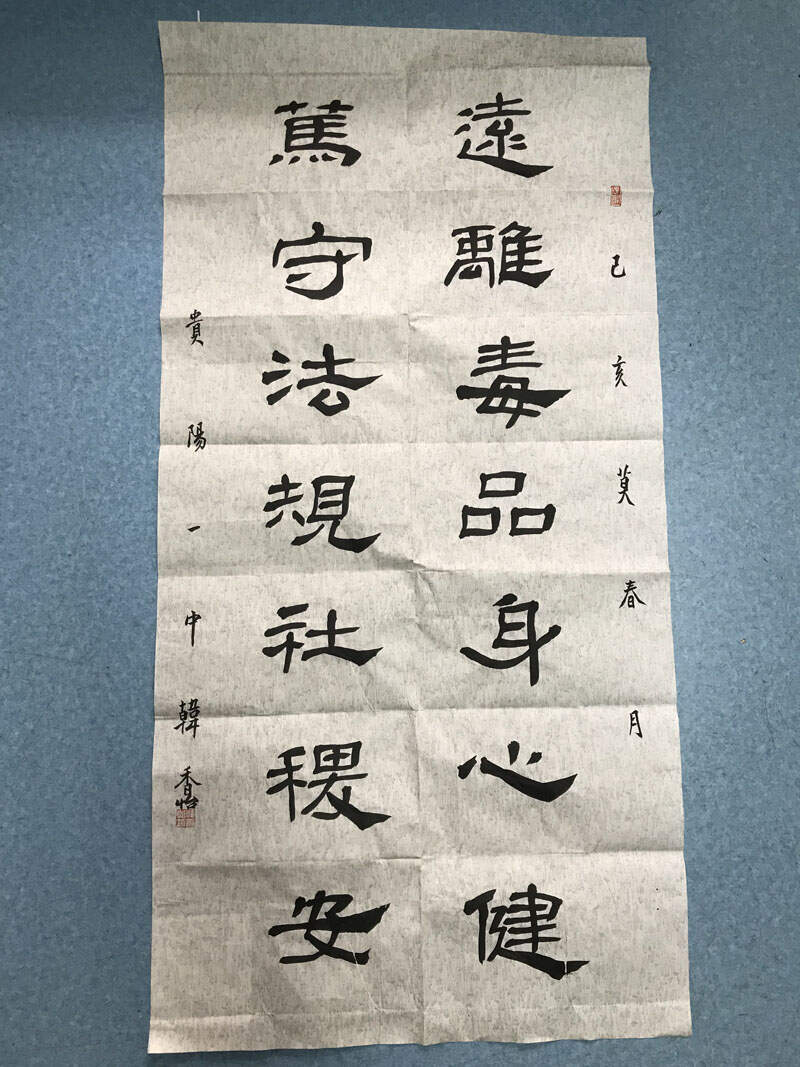 己亥莫春月
遠離毒品身心健
篤守法規社稷安
貴陽一中韓香怡